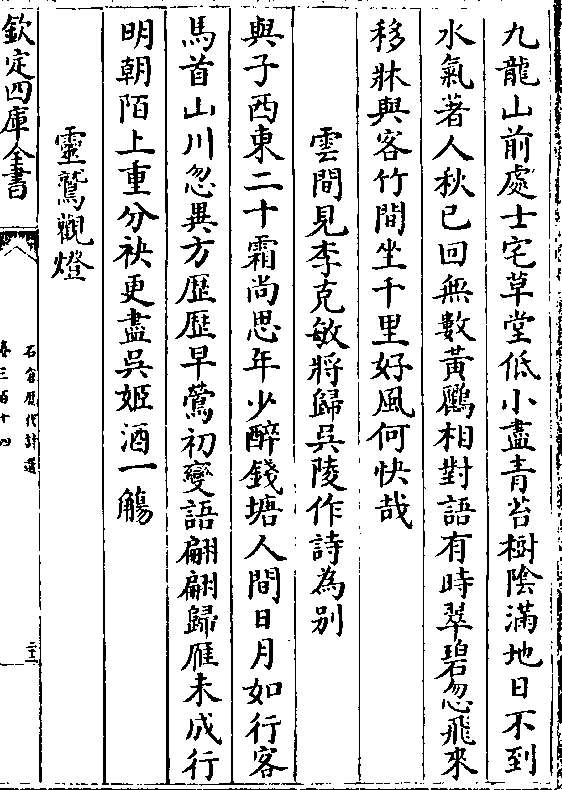 九龍山前處士宅草堂低小盡青苔樹陰滿地日不到
水氣著人秋已回無數黃鸝相對語有時翠碧忽飛來
移牀與客竹間坐千里好風何快哉
雲間見李克敏將歸吳陵作詩為別
與子西東二十霜尚思年少醉錢塘人間日月如行客
馬首山川忽異方歷歷早鶯初變語翩翩歸雁未成行
明朝陌上重分袂更盡吳姬酒一觴
靈鷲觀燈
欽定四庫全書
石倉歷代詩選
卷三百十四